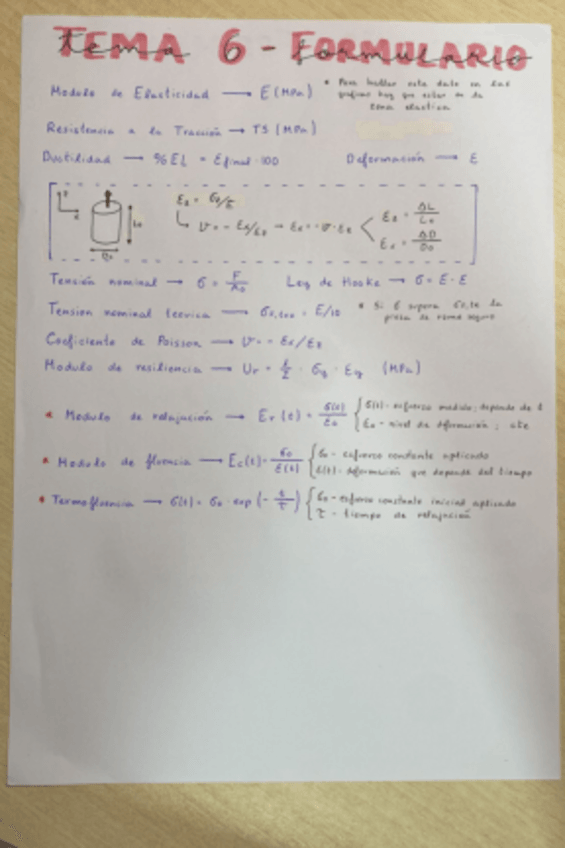 TEMA 6 - FORMULARIO
tema formulario
Modulo de Elasticidad → E (MPa) * Para hallar este dato en las
graficas hay que estar en la
zona elastica
Resistencia a la Tracción → TS (MPa)
Ductilidad → % EL = Efinal · 100 Deformación → ε
z
x
Lo
Do
εz = σz/E
ν = - εx/εz → εx = - ν · εz
εz = ΔL/Lo
εx = ΔD/Do
Tensión nominal → σ = F/Ao Ley de Hooke → σ = E · ε
Tension nominal teorica → = E/10 * Si σ supera la
pieza se rompe seguro
Coeficiente de Poisson → ν = - εx/εz
Modulo de resiliencia → Ur = 1/2 · σy · εy (MPa)
* Modulo de relajación → Er (t) = σ(t)/εo { σ(t) - esfuerzo medido; depende de t
εo - nivel de deformación; cte
* Modulo de fluencia → Ec(t) = σo/ε(t) { σo - esfuerzo constante aplicado
ε(t) - deformación que depende del tiempo
* Termofluencia → σ(t) = σo · exp (- t/τ) { σo - esfuerzo constante inicial aplicado
τ - tiempo de relajación